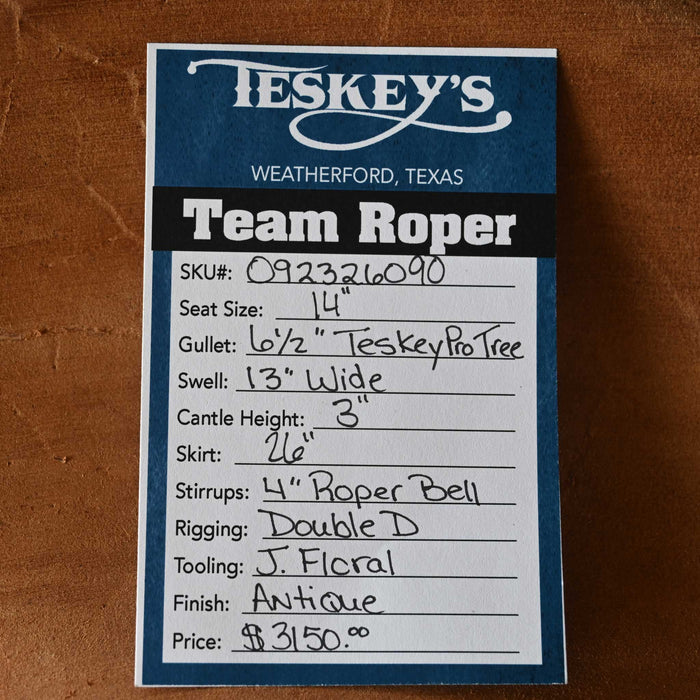 TESKEY'S
WEATHERFORD, TEXAS
Team Roper
SKU#: 092326090
Seat Size: 14"
Gullet: 6½" Teskey Pro Tree
Swell: 13" Wide
Cantle Height: 3"
Skirt: 26"
Stirrups: 4" Roper Bell
Rigging: Double D
Tooling: J. Floral
Finish: Antique
Price: $3150.00